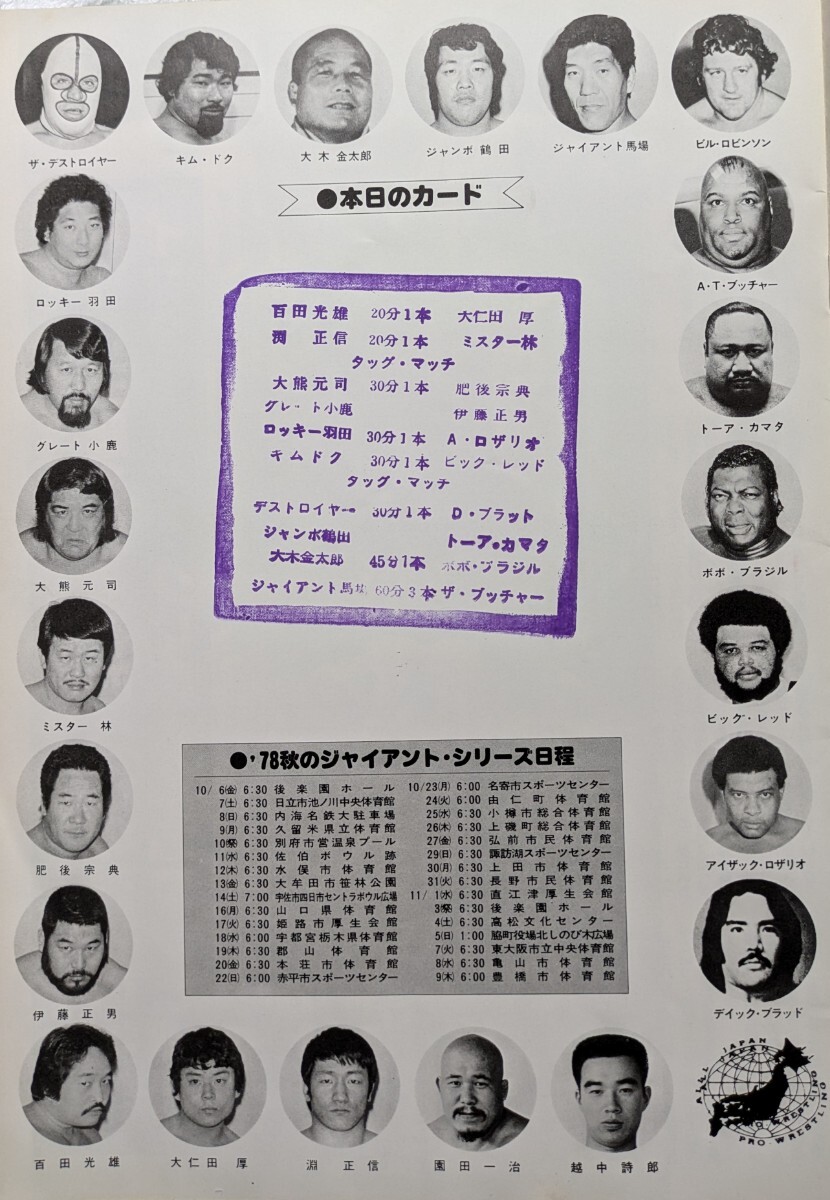 ザ・デストロイヤー
キム・ドク
大木金太郎
ジャンボ鶴田
ジャイアント馬場
ビル・ロビンソン
●本日のカード
ロッキー羽田
A・T・ブッチャー
百田光雄 20分1本 大仁田 厚
渕 正信 20分1本 ミスター林
タッグ・マッチ
大熊元司 30分1本 肥後宗典
グレート小鹿 伊藤正男
ロッキー羽田 30分1本 A・ロザリオ
キムドク 30分1本 ビック・レッド
タッグ・マッチ
デストロイヤー 30分1本 D・ブラット
ジャンボ鶴田 トーア・カマタ
大木金太郎 45分1本 ボボ・ブラジル
ジャイアント馬場 60分3本 ザ・ブッチャー
グレート小鹿
トーア・カマタ
大熊元司
ボボ・ブラジル
ミスター 林
ビッグ・レッド
●'78秋のジャイアント・シリーズ日程
10/6㈮ 6:30 後楽園ホール
7㈯ 6:30 日立市池ノ川中央体育館
8㈰ 6:30 内海名鉄大駐車場
9㈪ 6:30 久留米県立体育館
10㈷ 6:30 別府市営温泉プール
11㈬ 6:30 佐伯ボウル跡
12㈭ 6:30 水俣市体育館
13㈮ 6:30 大牟田市笹林公園
14㈯ 7:00 宇佐市四日市セントラボウル広場
16㈪ 6:30 山口県体育館
17㈫ 6:30 姫路市厚生会館
18㈬ 6:00 宇都宮栃木県体育館
19㈭ 6:30 郡山体育館
20㈮ 6:30 本荘市体育館
22㈰ 6:00 赤平市スポーツセンター
10/23㈪ 6:00 名寄市スポーツセンター
24㈫ 6:00 由仁町体育館
25㈬ 6:30 小樽市総合体育館
26㈭ 6:30 上磯町総合体育館
27㈮ 6:30 弘前市民体育館
29㈰ 6:30 諏訪湖スポーツセンター
30㈪ 6:30 上田市体育館
31㈫ 6:30 長野市民体育館
11/1㈬ 6:30 直江津厚生会館
3㈷ 6:30 後楽園ホール
4㈯ 6:30 高松文化センター
5㈰ 1:00 脇町役場北しのび木広場
7㈫ 6:30 東大阪市立中央体育館
8㈬ 6:30 亀山市体育館
9㈭ 6:00 豊橋市体育館
肥後宗典
アイザック・ロザリオ
伊藤正男
デイック・ブラッド
百田光雄
大仁田厚
淵正信
園田一治
越中詩郎
ALL JAPAN
PRO WRESTLING